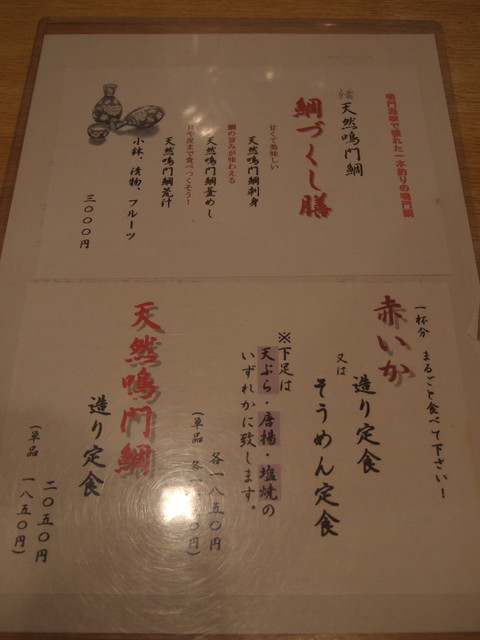 鳴門海峡で獲れた一本釣りの鳴門鯛
天然鳴門鯛
鯛づくし膳
甘くて美味しい
天然鳴門鯛刺身
鯛の旨みが味わえる
天然鳴門鯛釜めし
目や皮まで食べつくそう!
天然鳴門鯛荒汁
小鉢、漬物、フルーツ
三〇〇〇円
一杯分 まるごと食べて下さい!
赤いか
造り定食
又は
そうめん定食
※下足は
天ぷら・唐揚・塩焼の
いずれかに致します。
各一八五〇円
(単品 各一
〇円)
天然鳴門鯛
造り定食
二〇五〇円
(単品 一八五〇円)